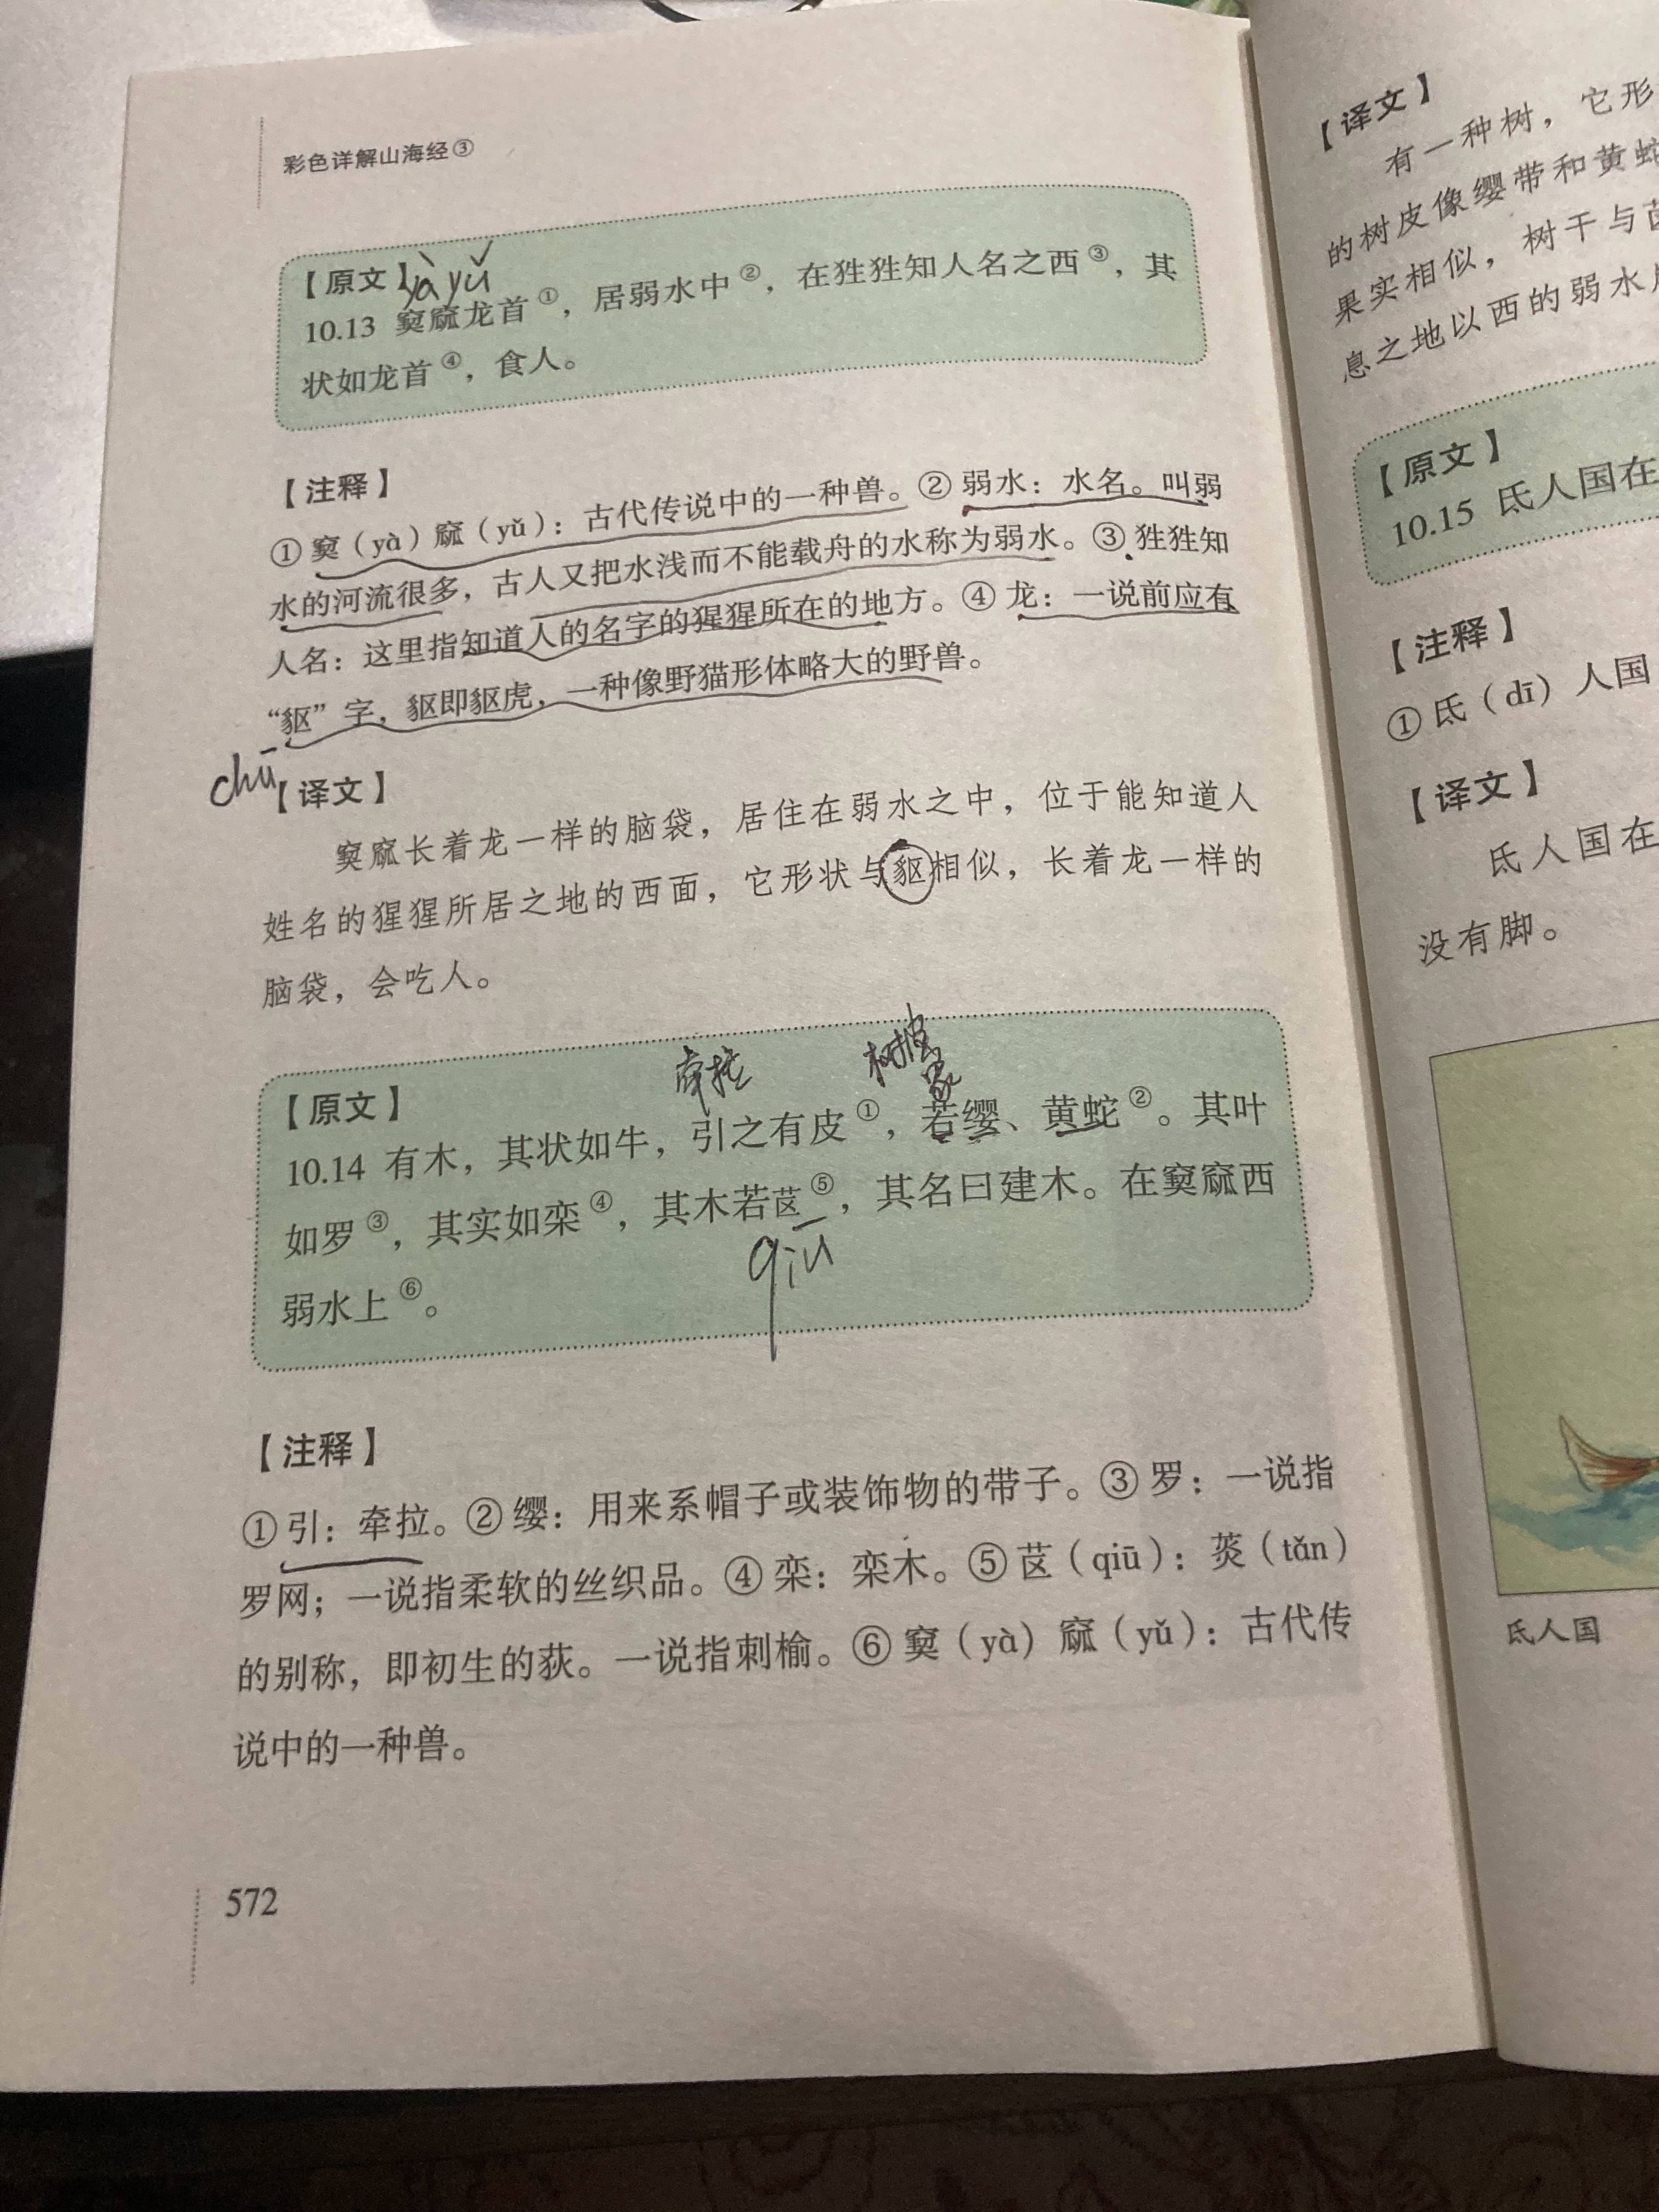 彩色详解山海经③
【原文】
yà yǔ
10.13 窫窳龙首①，居弱水中②，在狌狌知人名之西③，其
状如龙首④，食人。
【注释】
①窫（yà）窳（yǔ）：古代传说中的一种兽。②弱水：水名。叫弱
水的河流很多，古人又把水浅而不能载舟的水称为弱水。③狌狌知
人名：这里指知道人的名字的猩猩所在的地方。④龙：一说前应有
“䝙”字，䝙即䝙虎，一种像野猫形体略大的野兽。
chū
【译文】
窫窳长着龙一样的脑袋，居住在弱水之中，位于能知道人
姓名的猩猩所居之地的西面，它形状与䝙相似，长着龙一样的
脑袋，会吃人。
牵拉
树皮
象
【原文】
10.14 有木，其状如牛，引之有皮①，若缨、黄蛇②。其叶
如罗③，其实如栾④，其木若蓲⑤，其名曰建木。在窫窳西
qiū
弱水上⑥。
【注释】
①引：牵拉。②缨：用来系帽子或装饰物的带子。③罗：一说指
罗网；一说指柔软的丝织品。④栾：栾木。⑤蓲（qiū）：菼（tǎn）
的别称，即初生的荻。一说指刺榆。⑥窫（yà）窳（yǔ）：古代传
说中的一种兽。
572
【译文】
有一种树，它形
的树皮像缨带和黄蛇
果实相似，树干与
息之地以西的弱水
【原文】
10.15 氐人国在
【注释】
①氐（dī）人国
【译文】
氐人国在
没有脚。
氐人国